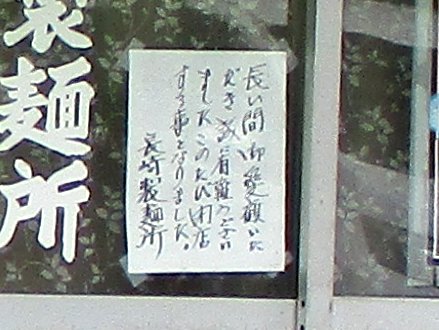 長い間御愛顧いた
だき誠に有難うござい
ましたこのたび閉店
する事となりました。
長崎製麺所
製麺所